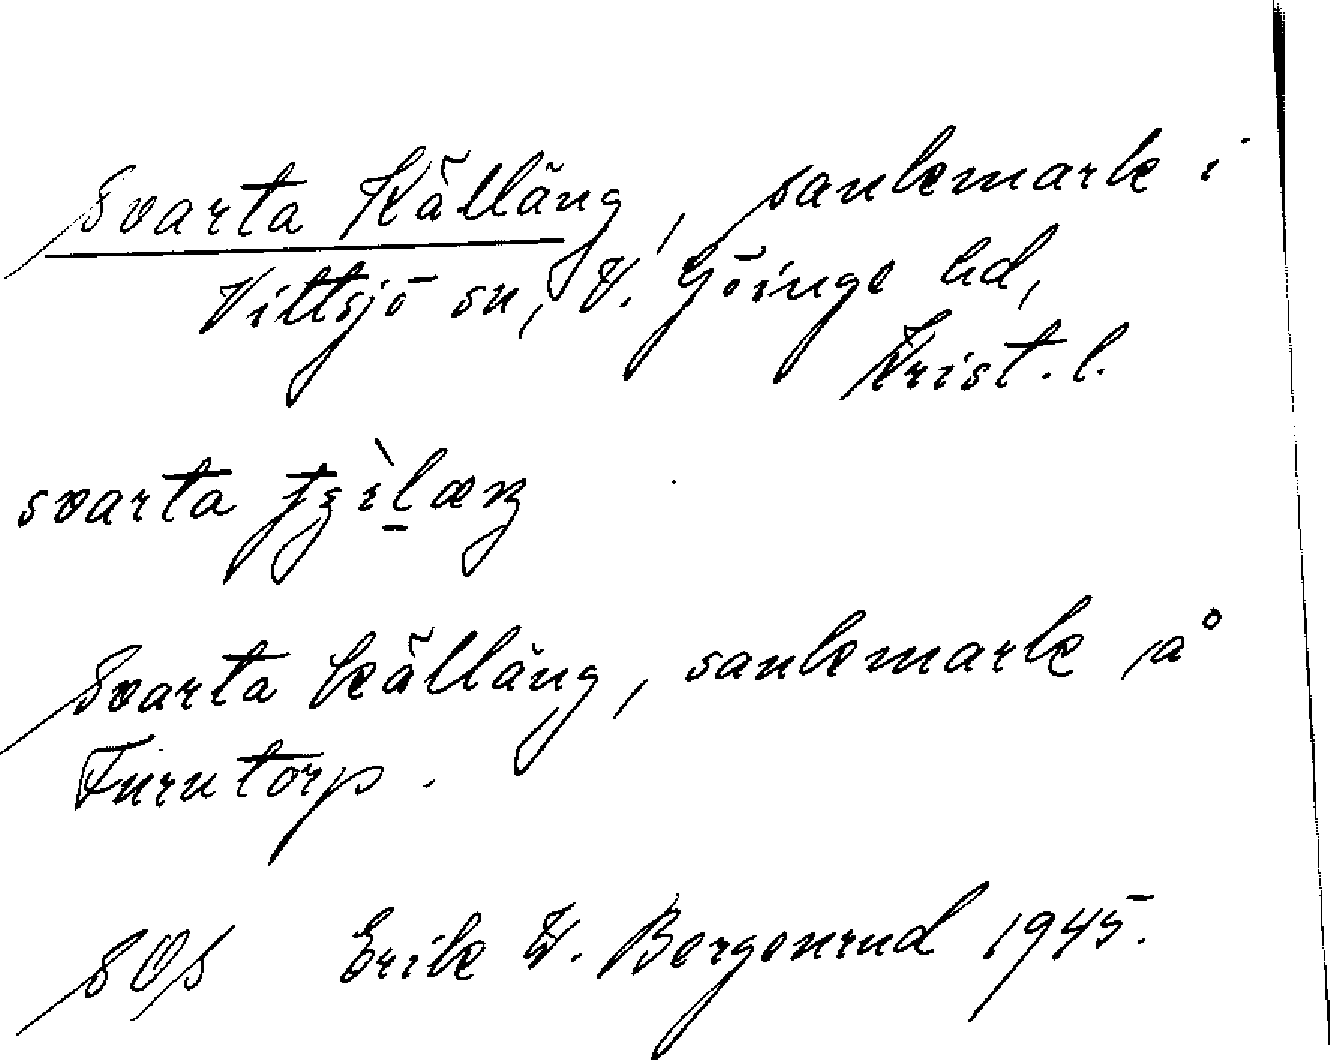 Svarta Källäng, sankmark i
Vittsjö sn, V. Göinge hd,
Krist. l.
svarta
Svarta källäng, sankmark på
Furutorp.
SOS Erik W. Bergenrud 1945.